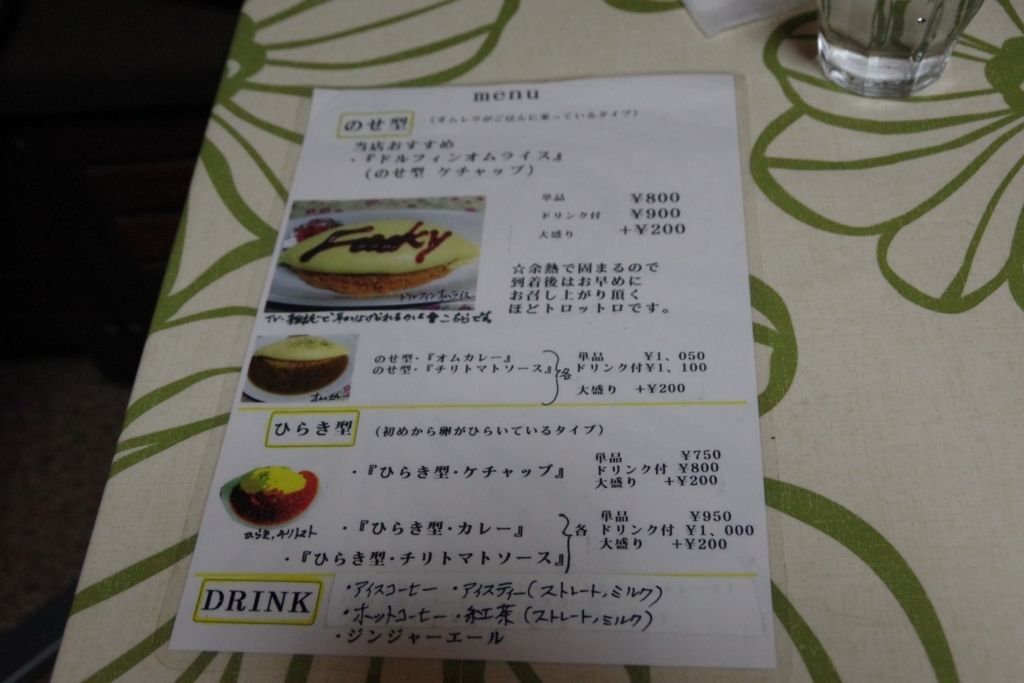 menu
のせ型 (オムレツがごはんに乗っているタイプ)
当店おすすめ
・『ドルフィンオムライス』
(のせ型 ケチャップ)
単品 ¥800
ドリンク付 ¥900
大盛り +¥200
Fooky
ドルフィンオムライス
☆余熱で固まるので
到着後はお早めに
お召し上がり頂く
ほどトロットロです。
こちらです
のせ型・『オムカレー』
のせ型・『チリトマトソース』
各
単品 ¥1、050
ドリンク付¥1、100
大盛り +¥200
オムカレー
ひらき型 (初めから卵がひらいているタイプ)
・『ひらき型・ケチャップ』
単品 ¥750
ドリンク付 ¥800
大盛り +¥200
ひらき,チリトマト
・『ひらき型・カレー』
・『ひらき型・チリトマトソース』
各
単品 ¥950
ドリンク付 ¥1、000
大盛り +¥200
DRINK
・アイスコーヒー ・アイスティー(ストレート,ミルク)
・ホットコーヒー ・紅茶(ストレート,ミルク)
・ジンジャーエール